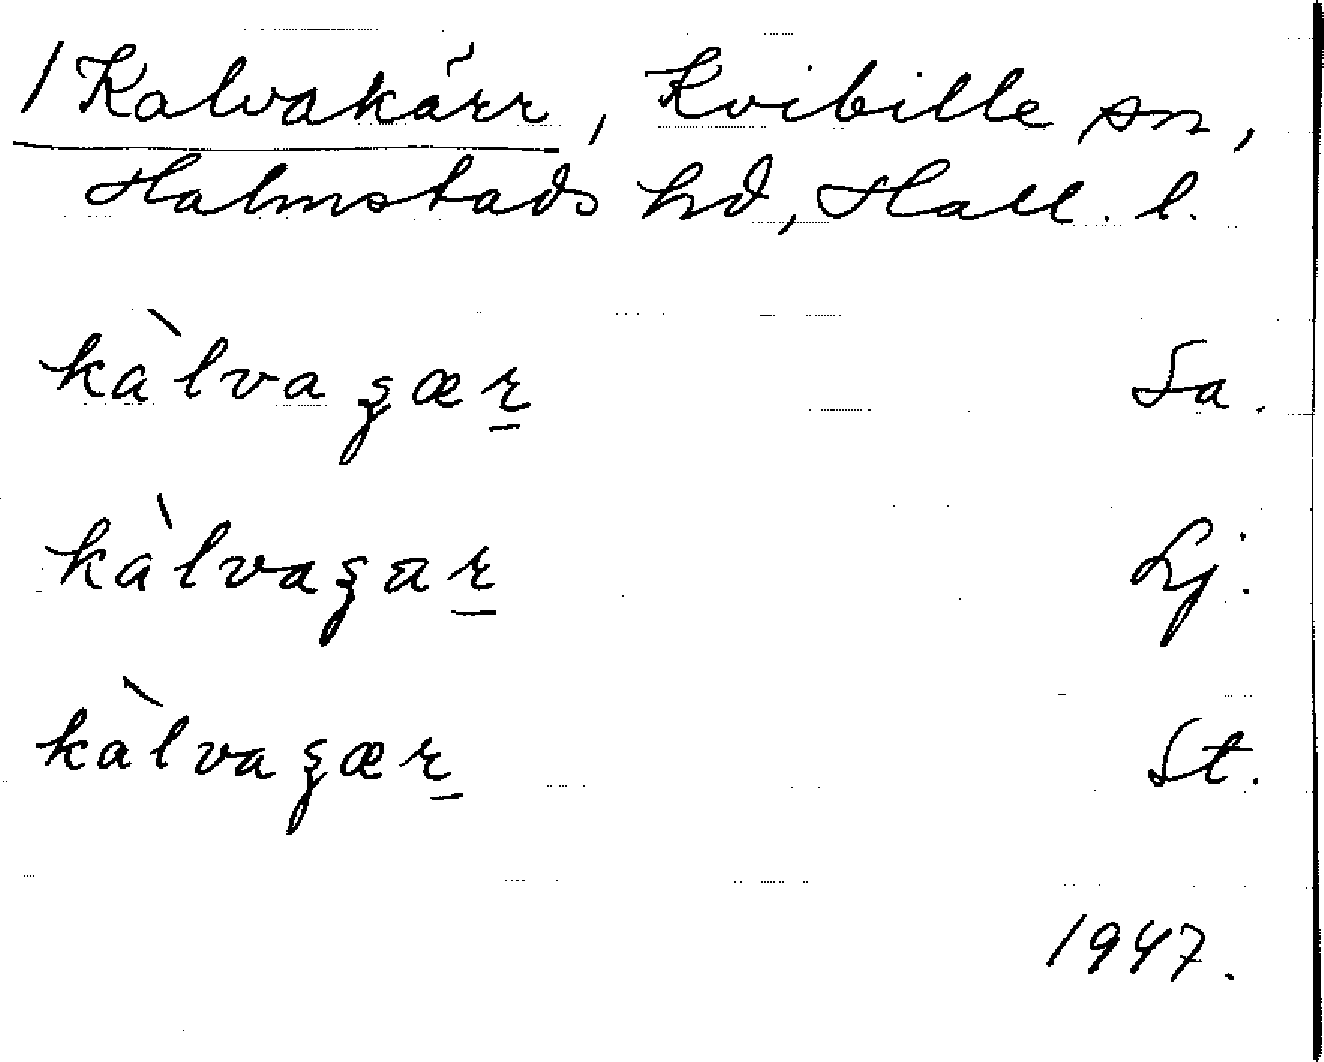 / Kalvakärr, Kvibille sn,
Halmstads hd, Hall. l.
kàlvaʒæꭇ̠ Sa.
kàlvaʒaꭇ̠ Lj.
kàlvaʒæꭇ̠ St.
1947.